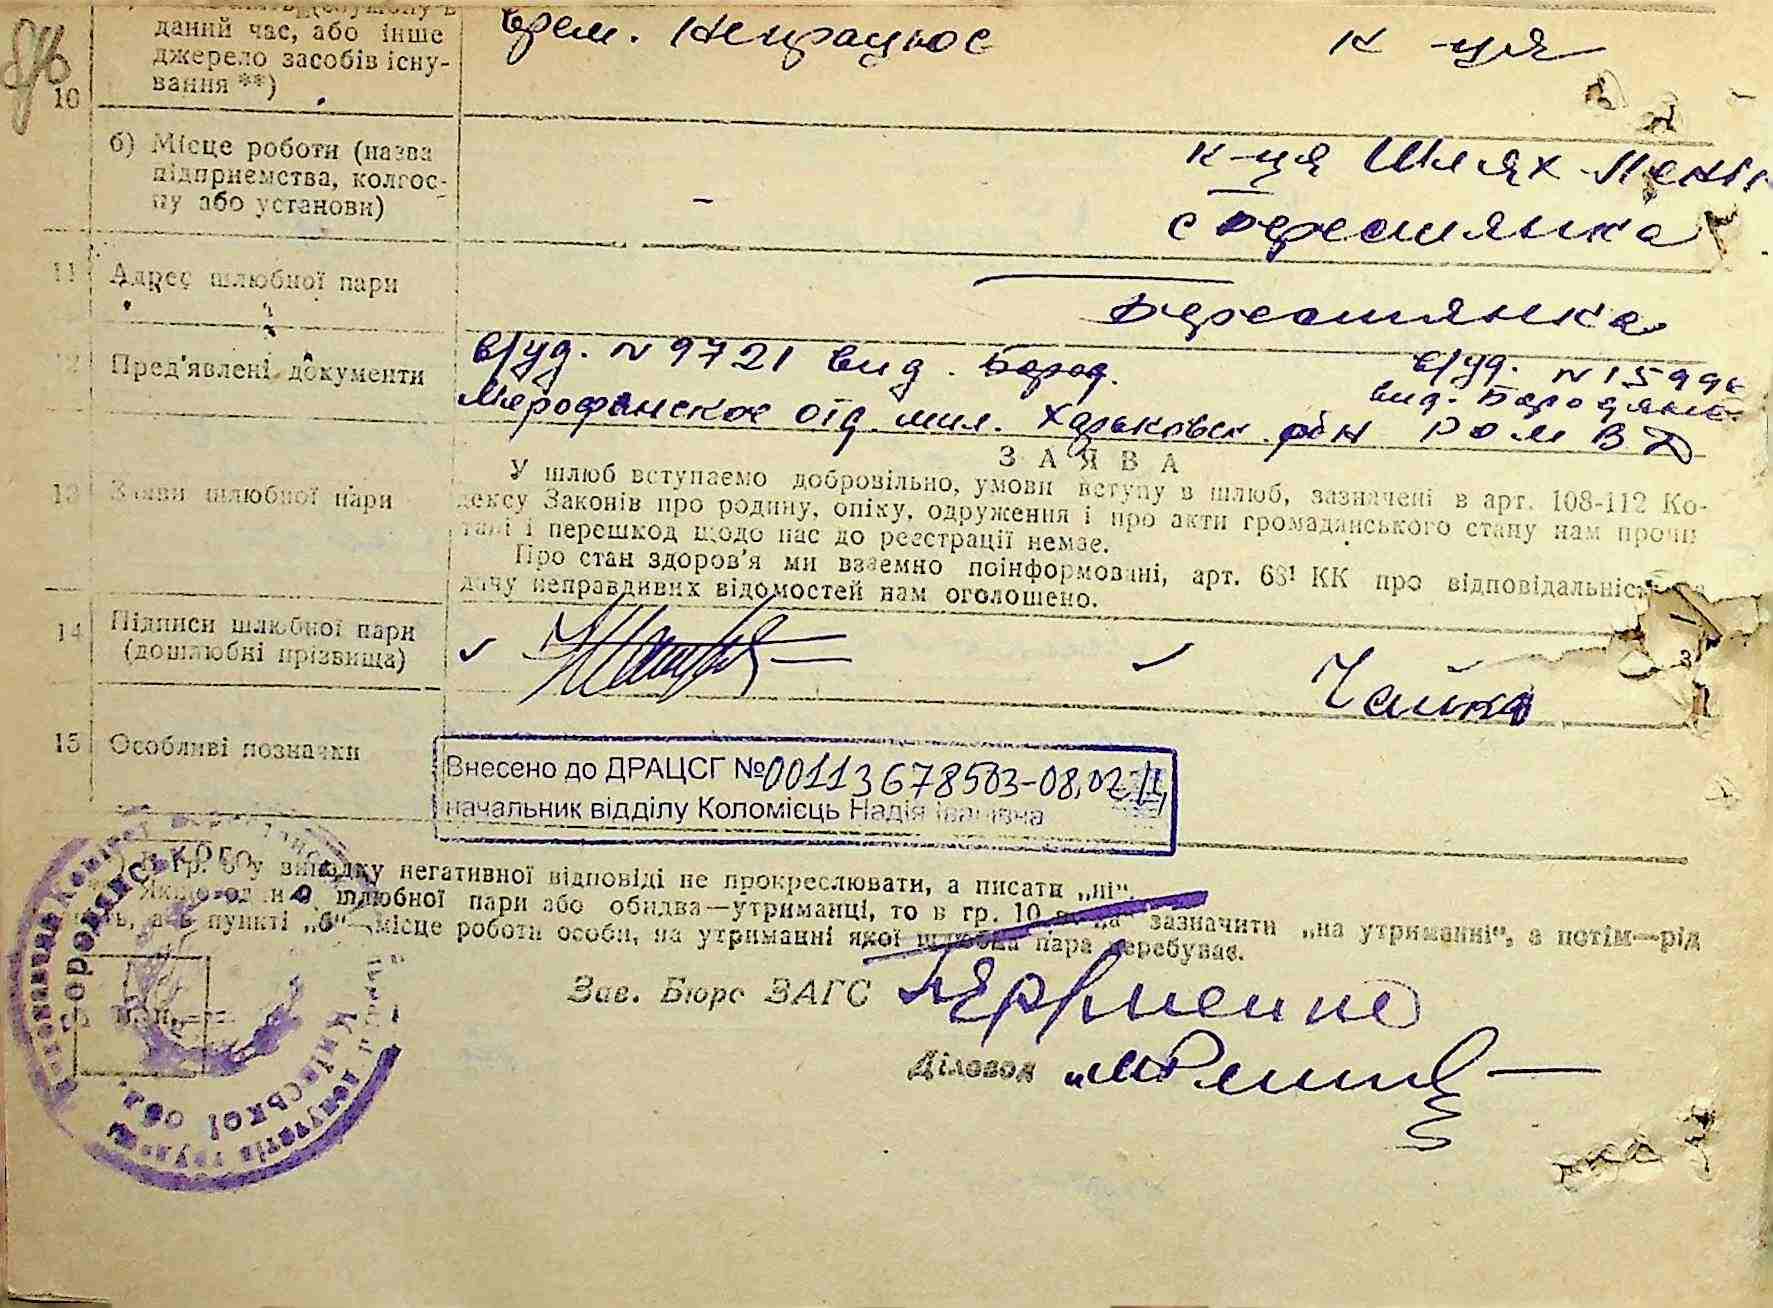 даний час, або інше
джерело засобів існу-
вання **)
10
врем. Непрацює
к -ця
б) Місце роботи (назва
підприємства, колгос-
пу або установи)
-
к-ця Шлях Лені
с Берестянка
11 Адрес шлюбної пари
Берестянка
12 Пред'явлені документи
в/уд. N 9721 вид. Барод.
Мерофянское отд. мил. Харьковск. обл
в/уд. N 1599
вид. Бародянс
РО М В Д
З А Я В А
13 Заяви шлюбної пари
У шлюб вступаємо добровільно, умови вступу в шлюб, зазначені в арт. 108-112 Ко-
дексу Законів про родину, опіку, одруження і про акти громаданського стану нам прочи
тані і перешкод щодо нас до реєстрації немає.
Про стан здоров'я ми взаємно поінформовані, арт. 68¹ КК про відповідальність за
дачу неправдивих відомостей нам оголошено.
14 Підписи шлюбної пари
(дошлюбні прізвища)
Чайка
15 Особливі позначки
Внесено до ДРАЦСГ №00113678503-08.02
начальник відділу Коломієць Надія Іванівна
В гр. 6 у випадку негативної відповіді не прокреслювати, а писати „ні".
Якщо один з шлюбної пари або обидва—утриманці, то в гр. 10 зазначити „на утриманні", а потім—рід
а в пункті „б"—місце роботи особи, на утриманні якої шлюбна пара перебуває.
Зав. Бюро ЗАГС
Діловод
Київської обл.